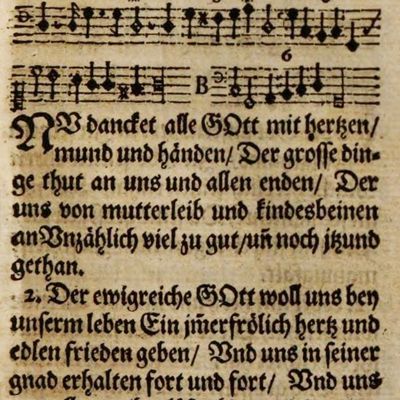 6
B
NV dancket alle GOtt mit hertzen/
mund und händen/ Der grosse din-
ge thut an uns und allen enden/ Der
uns von mutterleib und kindesbeinen
an Vnzählich viel zu gut/ uñ noch jtzund
gethan.
2. Der ewigreiche GOtt woll uns bey
unserm leben Ein jm̃erfrölich hertz und
edlen frieden geben/ Vnd uns in seiner
gnad erhalten fort und fort/ Vnd uns